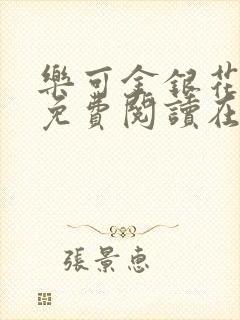 樂可金銀花
免費閱讀在
張景惠